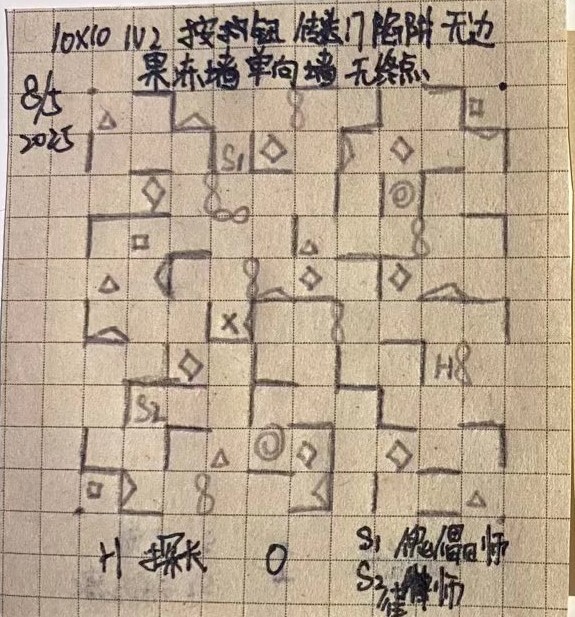 10X10 1V2 按按钮 传送门 陷阱 无边
果冻墙 单向墙 无终点
8/5
2025
S1
X
H
S2
H 探长 O S1 傀儡师
S2 师